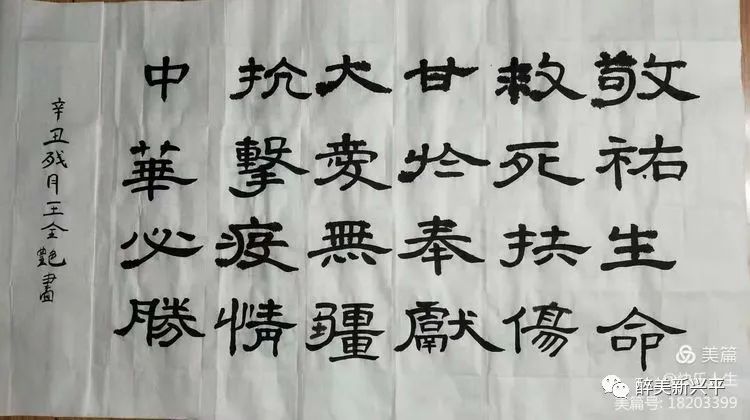 敬祐生命
救死扶傷
甘於奉獻
大愛無疆
抗擊疫情
中華必勝
辛丑残月王全艷書
美篇
@快乐人生
美篇号: 18203399
醉美新兴平